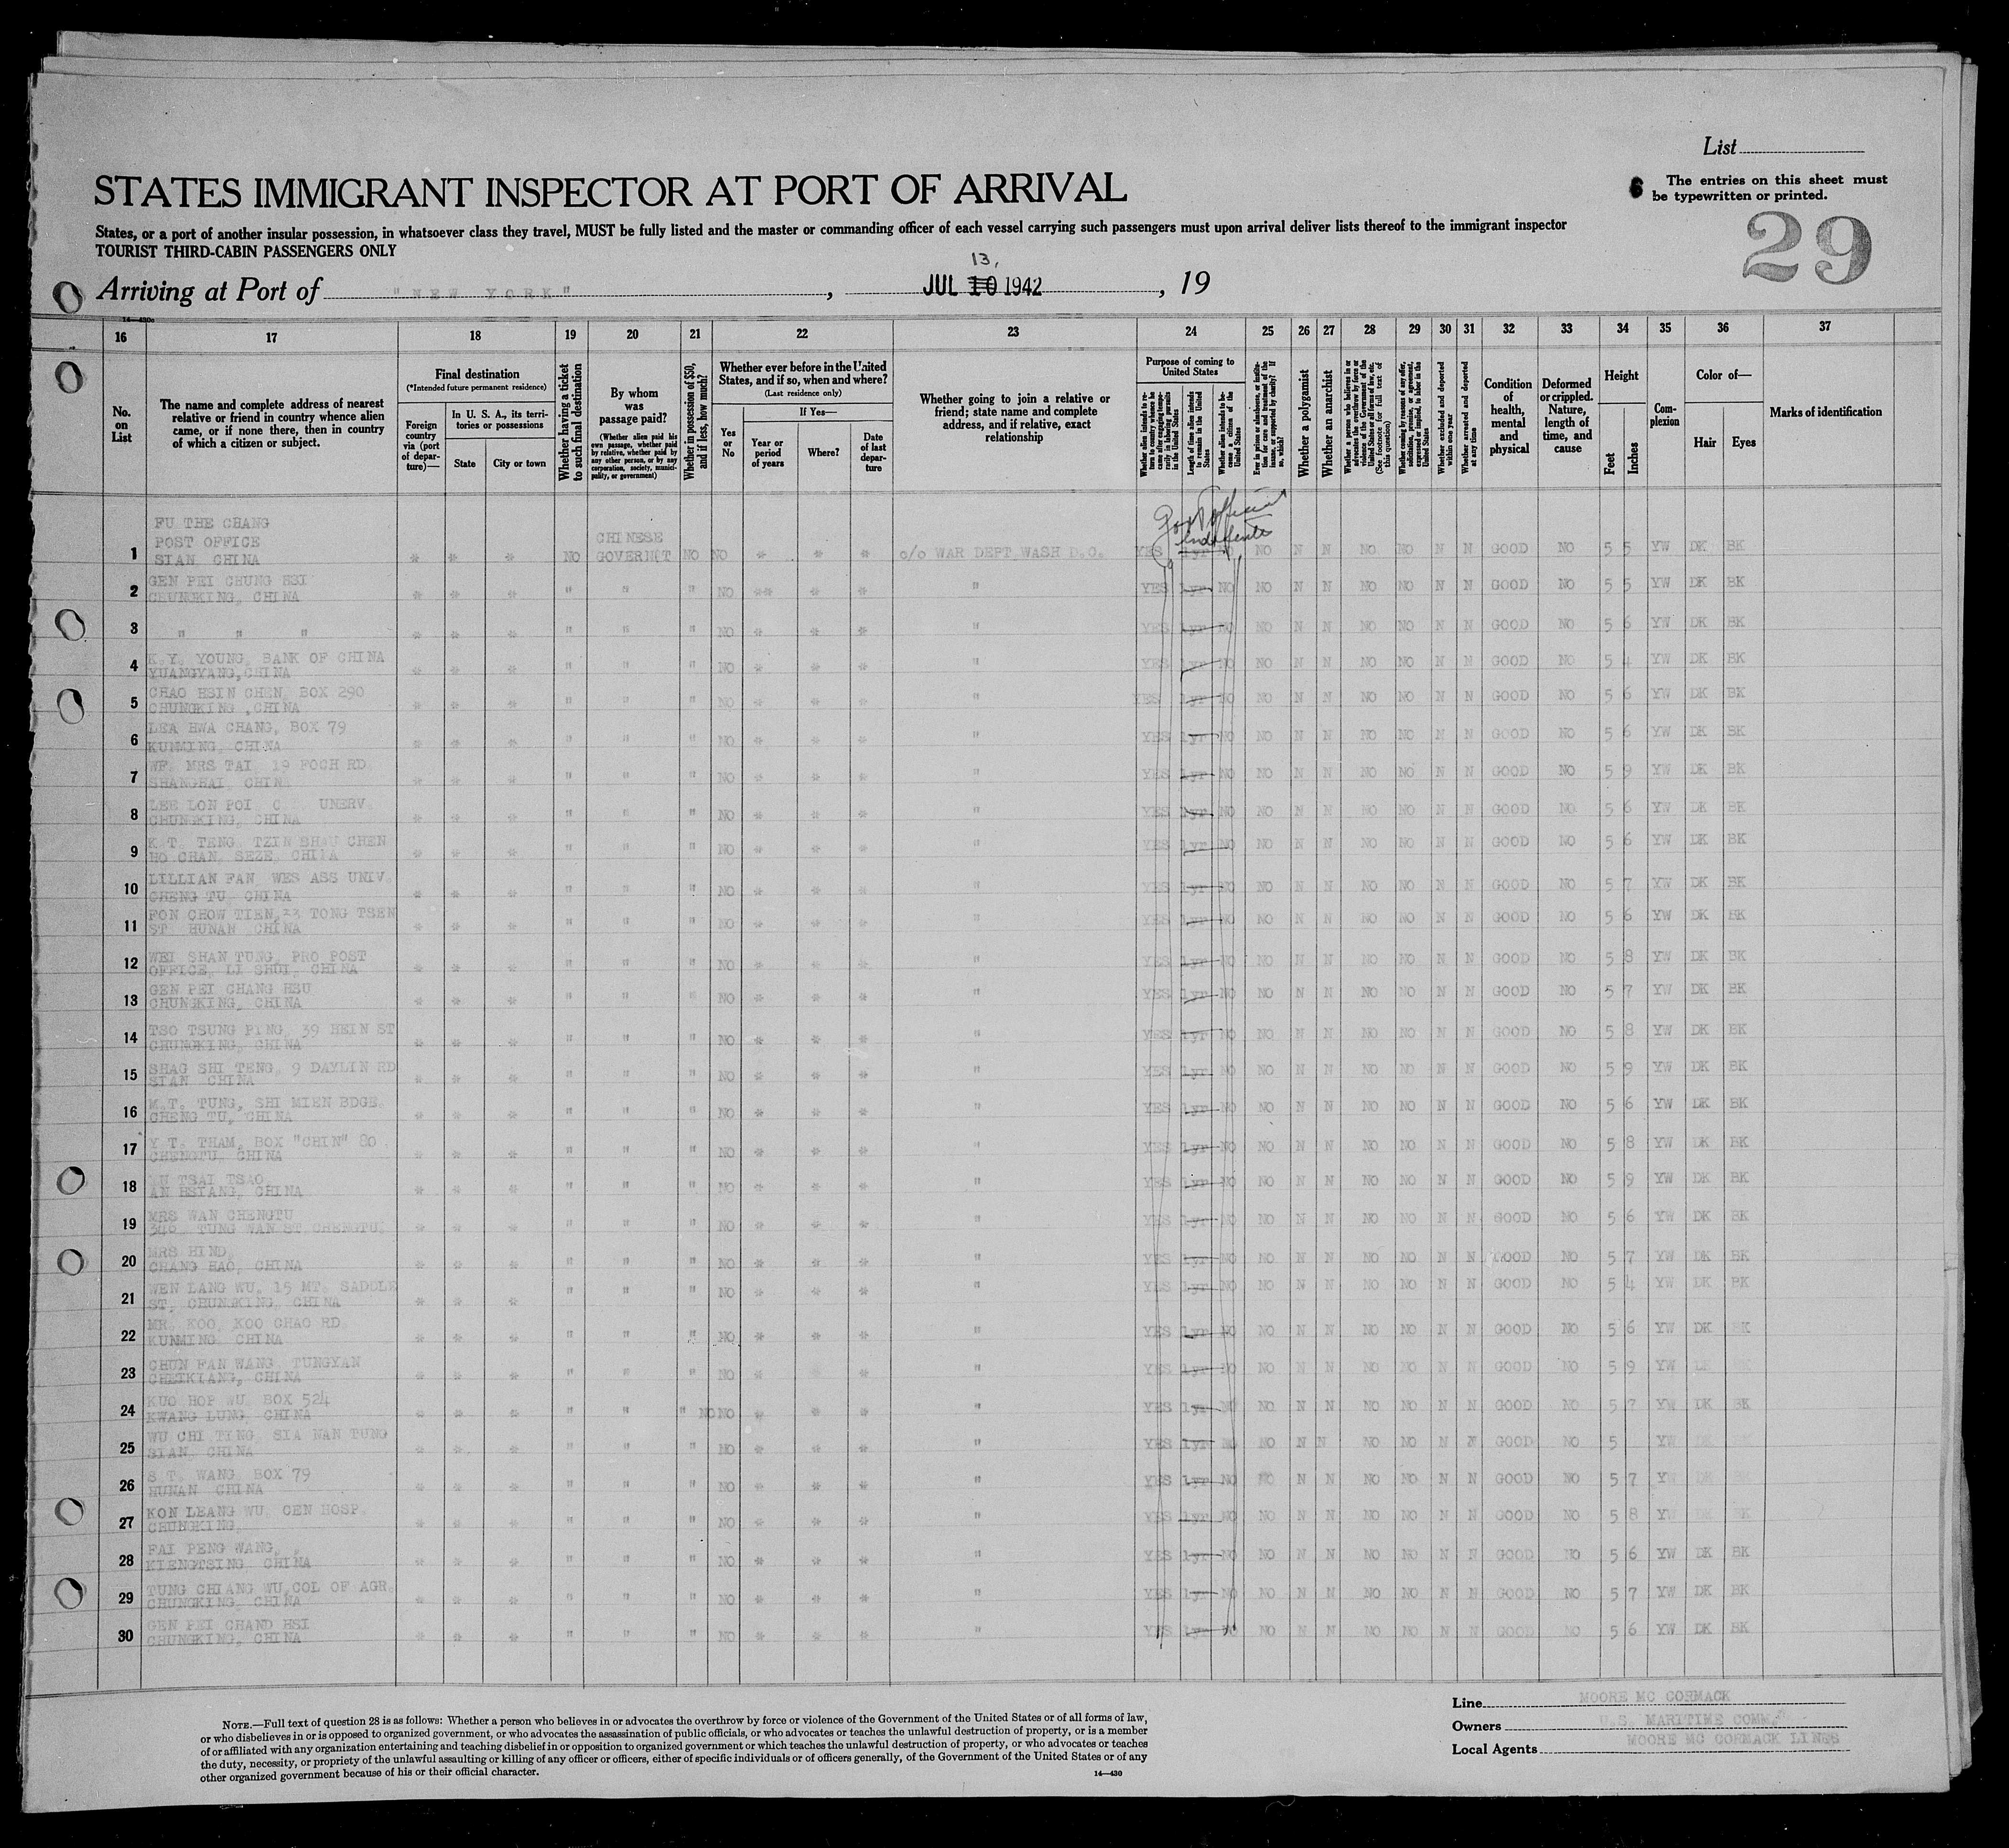 List
STATES IMMIGRANT INSPECTOR AT PORT OF ARRIVAL
6 The entries on this sheet must
be typewritten or printed.
29
States, or a port of another insular possession, in whatsoever class they travel, MUST be fully listed and the master or commanding officer of each vessel carrying such passengers must upon arrival deliver lists thereof to the immigrant inspector
TOURIST THIRD-CABIN PASSENGERS ONLY
13,
Arriving at Port of "NEW YORK", JUL 10 1942, 19
14—430c
16 17 18 19 20 21 22 23 24 25 26 27 28 29 30 31 32 33 34 35 36 37
No. on List
The name and complete address of nearest relative or friend in country whence alien came, or if none there, then in country of which a citizen or subject.
Final destination
(*Intended future permanent residence)
Foreign country via (port of departure)—
In U. S. A., its territories or possessions
State City or town
Whether having a ticket to such final destination
By whom was passage paid?
(Whether alien paid his own passage, whether paid by relative, whether paid by any other person, or by any corporation, society, municipality, or government)
Whether in possession of $50, and if less, how much?
Whether ever before in the United States, and if so, when and where?
(Last residence only)
Yes or No
If Yes—
Year or period of years Where? Date of last departure
Whether going to join a relative or friend; state name and complete address, and if relative, exact relationship
Purpose of coming to United States
Whether alien intends to return to country whence he came after engaging temporarily in laboring pursuits in the United States
Length of time alien intends to remain in the United States
Whether alien intends to become a citizen of the United States
Ever in prison or almshouse, or institution for care and treatment of the insane, or supported by charity? If so, which?
Whether a polygamist
Whether an anarchist
(See footnote for full text of this question)
Whether coming by reasons of any offer, solicitation, promise, or agreement, expressed or implied, to labor in the United States
Whether excluded and deported within one year
Whether arrested and deported at any time
Condition of health, mental and physical
Deformed or crippled. Nature, length of time, and cause
Height
Feet Inches
Complexion
Color of—
Hair Eyes
Marks of identification
Gov't official
indefinite
FU THE CHANG
POST OFFICE CHINESE
1 SIAN CHINA * * * NO GOVERN(T NO NO * * * c/o WAR DEPT WASH D.C. YES 1yr NO NO N N NO NO N N GOOD NO 5 5 YW DK BK
GEN PEI CHUNG HSI
2 CHUNGKING, CHINA * * * " " " NO ** * * " YES 1yr NO NO N N NO NO N N GOOD NO 5 5 YW DK BK
3 " " " * * * " " " NO * * * " YES 1yr NO NO N N NO NO N N GOOD NO 5 6 YW DK BK
K.Y. YOUNG, BANK OF CHINA
4 YUANGYANG,CHINA * * * " " " NO * * * " YES 1yr NO NO N N NO NO N N GOOD NO 5 4 YW DK BK
CHAO HSIN CHEN, BOX 290
5 CHUNGKING ,CHINA * * * " " " NO * * * " YES 1yr NO NO N N NO NO N N GOOD NO 5 6 YW DK BK
LEA HWA CHANG, BOX 79
6 KUNMING, CHINA * * * " " " NO * * * " YES 1yr NO NO N N NO NO N N GOOD NO 5 6 YW DK BK
WF. MRS TAI, 19 FOCH RD
7 SHANGHAI, CHINA * * * " " " NO * * * " YES 1yr NO NO N N NO NO N N GOOD NO 5 9 YW DK BK
LEE LON POI, UNERV.
8 CHUNGKING, CHINA * * * " " " NO * * * " YES 1yr NO NO N N NO NO N N GOOD NO 5 6 YW DK BK
K T. TENG, TZIN SHAU CHEN
9 HO CHAN, SEZE, CHINA * * * " " " NO * * * " YES 1yr NO NO N N NO NO N N GOOD NO 5 6 YW DK BK
LILLIAN FAN WES ASS UNIV.
10 CHENG TU CHINA * * * " " " NO * * * " YES 1yr NO NO N N NO NO N N GOOD NO 5 7 YW DK BK
FON CHOW TIEN,23 TONG TSEN
11 ST HUNAN CHINA * * * " " " NO * * * " YES 1yr NO NO N N NO NO N N GOOD NO 5 6 YW DK BK
WEI SHAN TUNG, PRO POST
12 OFFICE, LI SHUI, CHINA * * * " " " NO * * * " YES 1yr NO NO N N NO NO N N GOOD NO 5 8 YW DK BK
GEN PEI CHANG HSU
13 CHUNGKING, CHINA * * * " " " NO * * * " YES 1yr NO NO N N NO NO N N GOOD NO 5 7 YW DK BK
TSO TSUNG PING, 39 HEIN ST
14 CHUNGKING, CHINA * * * " " " NO * * * " YES 1yr NO NO N N NO NO N N GOOD NO 5 8 YW DK BK
SHAG SHI TENG, 9 DAYLIN RD
15 SIAN CHINA * * * " " " NO * * * " YES 1yr NO NO N N NO NO N N GOOD NO 5 9 YW DK BK
M.T. TUNG, SHI MIEN BDGE.
16 CHENG TU, CHINA * * * " " " NO * * * " YES 1yr NO NO N N NO NO N N GOOD NO 5 6 YW DK BK
Y T. THAM, BOX "CHIN" 80
17 CHENGTU, CHINA * * * " " " NO * * * " YES 1yr NO NO N N NO NO N N GOOD NO 5 8 YW DK BK
TSAI TSAO
18 AN HSIANG, CHINA * * * " " " NO * * * " YES 1yr NO NO N N NO NO N N GOOD NO 5 9 YW DK BK
MRS WAN CHENGTU
19 340 TUNG WAN ST CHENGTU. * * * " " " NO * * * " YES 1yr NO NO N N NO NO N N GOOD NO 5 6 YW DK BK
MRS HIND,
20 CHANG HAO, CHINA * * * " " " NO * * * " YES 1yr NO NO N N NO NO N N GOOD NO 5 7 YW DK BK
WEN LANG WU, 15 MT. SADDLE
21 ST, CHUNGKING, CHINA * * * " " " NO * * * " YES 1yr NO NO N N NO NO N N GOOD NO 5 4 YW DK BK
MR. KOO, KOO CHAO RD.
22 KUNMING CHINA * * * " " " NO * * * " YES 1yr NO NO N N NO NO N N GOOD NO 5 6 YW DK BK
CHUN FAN WANG, TUNGYAN
23 CHEIKIANG, CHINA * * * " " " NO * * * " YES 1yr NO NO N N NO NO N N GOOD NO 5 9 YW
KUO HOP WU BOX 524
24 KWANG LUNG, CHINA * * * " " " NO NO * * * " YES 1yr NO NO N N NO NO N N GOOD NO 5 7 YW DK BK
WU CHI TING, SIA NAN TUNG
25 SIAN, CHINA * * * " " " NO * * * " YES 1yr NO NO N N NO NO N N GOOD NO 5 YW
S T. WANG, BOX 79
26 HUNAN CHINA * * * " " " NO * * * " YES 1yr NO NO N N NO NO N N GOOD NO 5 7 YW
KON LEANG WU, CEN HOSP.
27 CHUNGKING, * * * " " " NO * * * " YES 1yr NO NO N N NO NO N N GOOD NO 5 8 YW BK
FAI PENG WANG, ,
28 KIENGTSING CHINA * * * " " " NO * * * " YES 1yr NO NO N N NO NO N N GOOD NO 5 6 YW DK BK
TUNG CHIANG WU,COL OF AGR.
29 CHUNGKING, CHINA * * * " " " NO * * * " YES 1yr NO NO N N NO NO N N GOOD NO 5 7 YW DK BK
GEN PEI CHAND HSI
30 CHUNGKING, CHINA * * * " " " NO * * * " YES 1yr NO NO N N NO NO N N GOOD NO 5 6 YW DK BK
NOTE.—Full text of question 28 is as follows: Whether a person who believes in or advocates the overthrow by force or violence of the Government of the United States or of all forms of law,
or who disbelieves in or is opposed to organized government, or who advocates the assassination of public officials, or who advocates or teaches the unlawful destruction of property, or is a member
of or affiliated with any organization entertaining and teaching disbelief in or opposition to organized government or which teaches the unlawful destruction of property, or who advocates or teaches
the duty, necessity, or propriety of the unlawful assaulting or killing of any officer or officers, either of specific individuals or of officers generally, of the Government of the United States or of any
other organized government because of his or their official character.
14—430
Line MOORE MC CORMACK
Owners U.S. MARITIME COMM.
Local Agents MOORE MC CORMACK LINES